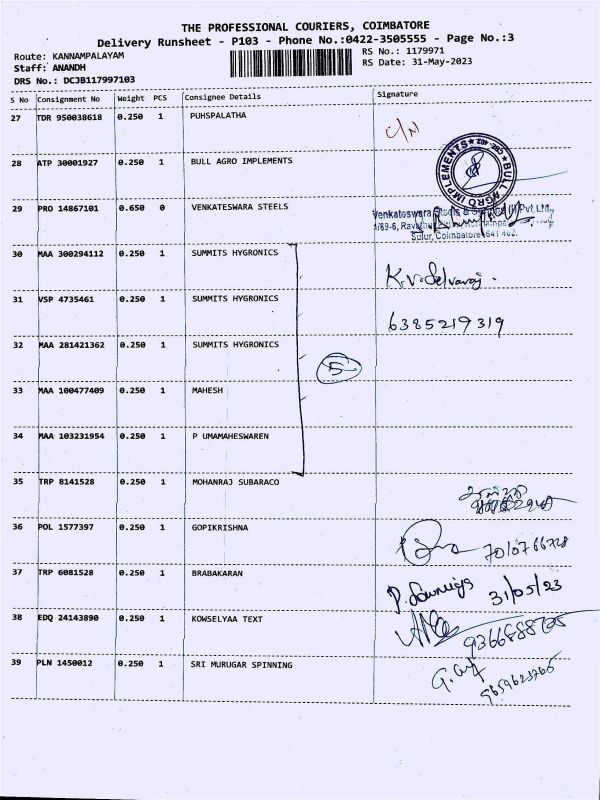 THE PROFESSIONAL COURIERS, COIMBATORE
Delivery Runsheet - P103 - Phone No.:0422-3505555 - Page No.:3
Route: KANNAMPALAYAM RS No.: 1179971
Staff: ANANDH RS Date: 31-May-2023
DRS No.: DCJB117997103
S No Consignment No Weight PCS Consignee Details Signature
27 TDR 950038618 0.250 1 PUHSPALATHA C/N
28 ATP 30001927 0.250 1 BULL AGRO IMPLEMENTS BULL AGRO IMPLEMENTS
29 PRO 14867101 0.650 0 VENKATESWARA STEELS Venkateswara Pvt. Ltd.,
Sulur, Coimbatore 641 402.
30 MAA 300294112 0.250 1 SUMMITS HYGRONICS K.V. Selvaraj.
31 VSP 4735461 0.250 1 SUMMITS HYGRONICS 6385219319
32 MAA 281421362 0.250 1 SUMMITS HYGRONICS 5
33 MAA 100477409 0.250 1 MAHESH
34 MAA 103231954 0.250 1 P UMAMAHESWAREN
35 TRP 8141528 0.250 1 MOHANRAJ SUBARACO
36 POL 1577397 0.250 1 GOPIKRISHNA
37 TRP 6081528 0.250 1 BRABAKARAN 31/05/23
38 EDQ 24143890 0.250 1 KOWSELYAA TEXT
39 PLN 1450012 0.250 1 SRI MURUGAR SPINNING